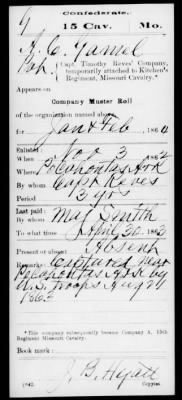 Confederate.
15 Cav. Mo.
Capt. Timothy Reves' Company,
temporarily attached to Kitchen's
Regiment, Missouri Cavalry.*
Appears on
Company Muster Roll
of the organization named above,
for Jan & Feb, 186
Enlisted:
When 3, 186
Where Pocahontas Ark
By whom Capt Reves
Period 3 yr
Last paid:
By whom Maj Smith
To what time 30, 186
Present or absent Absent
Remarks: Captured near
Pocahontas Ark by
U.S. troops Aug 24
1863
*This company subsequently became Company A, 15th
Regiment Missouri Cavalry.
Book mark:
J. B. Hyatt
(642) Copyist.